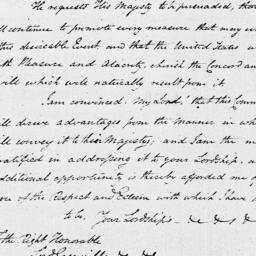 He requests His Majesty to be persuaded, that
ill continue to promote every measure that may
this desirable Event, and that the United States
ith Pleasure and Alacrity, cherish the Concord and
will which will naturally result from it.
I am convinced, My Lord, that this Comm
ill derive advantages from the Manner in wh
ill convey it to his Majesty; and I am the m
ratified in addressing it to your Lordship, a
dditional opportunity is thereby afforded me
you of the Respect and Esteem with which I have
to be, Your Lordship's &c &c
The Right Honorable
Lord Grenville &c &c